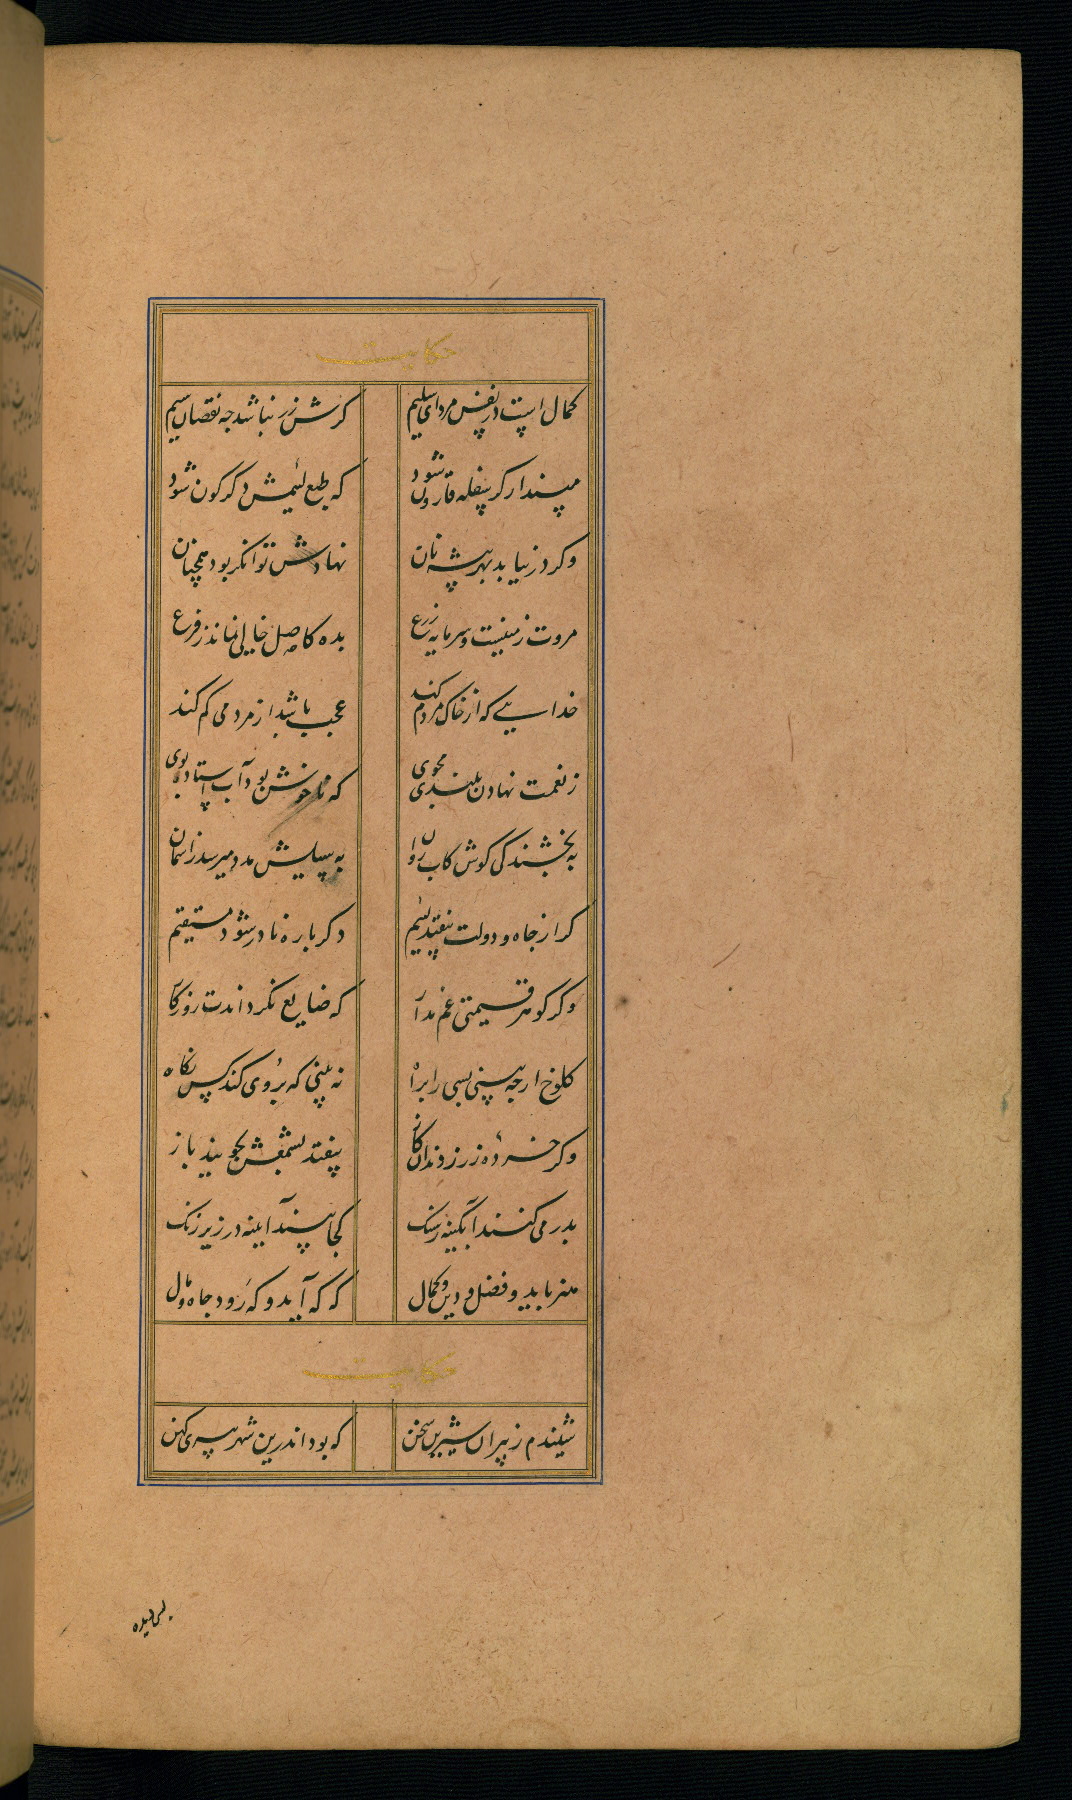 حکایت
کمال است در نفس مرد ای سلیم کرش زر نباشد چه نقصان سیم
مپندار کر سفله قارون شود که طبع لئیمش دکرکون شود
وکر در نیابد بهر پیشه نان نهادش توانکر بود همچنان
مروت زمینست و سرمایه زرع بده کاصل خالی نماند ز فرع
خدایی که از خاک مردم کند عجب باشد از مردمی کم کند
ز نعمت نهادن بلندی مجوی که ناخوش بود آب استاده بوی
به بخشندکی کوش کاب روان به سیلیش مدد میرسد ز اسمان
کر از جاه و دولت بیفتد لئیم دکرباره نادر شود مستقیم
وکر کوهر قیمتی غم مدار که ضایع نکرداندت روزکار
کلوخ ارچه بینی بسی را براه نه بینی که بروی کند کس نکاه
وکر خرده زر ز دندان کاز بیفتد بشمعش بجویند باز
بدر می کنند آبکینه ز سنک کجا بیند آیینه در زیر زنک
هنر باید و فضل و دین و کمال که که آید و که رود جاه و مال
حکایت
شنیدم ز پیران شیرین سخن که بود اندرین شهر پیری کهن